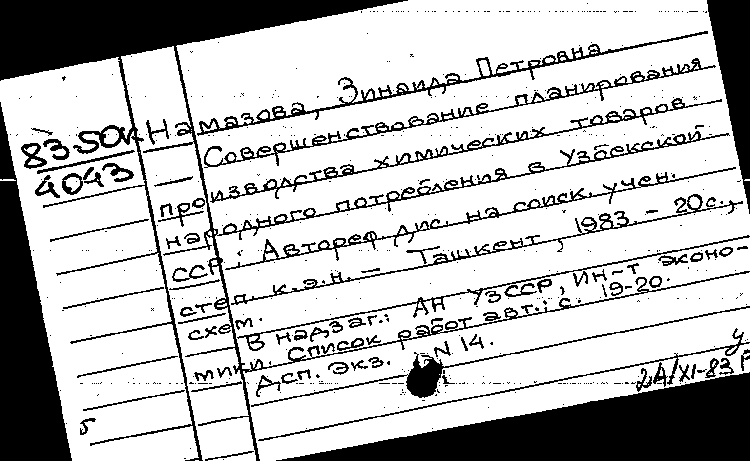 83.50к
4043
Намазова, Зинаида Петровна.
— Совершенствование планирования
производства химических товаров
народного потребления в Узбекской
ССР : Автореф. дис. на соиск. учен.
степ. к.э.н. — Ташкент, 1983. - 20с.,
схем.
В надзаг.: АН УзССР, Ин-т эконо-
мики. Список работ авт.: с. 19-20.
Дсп. Экз. N 14.
у
24/XI-83 Р
б